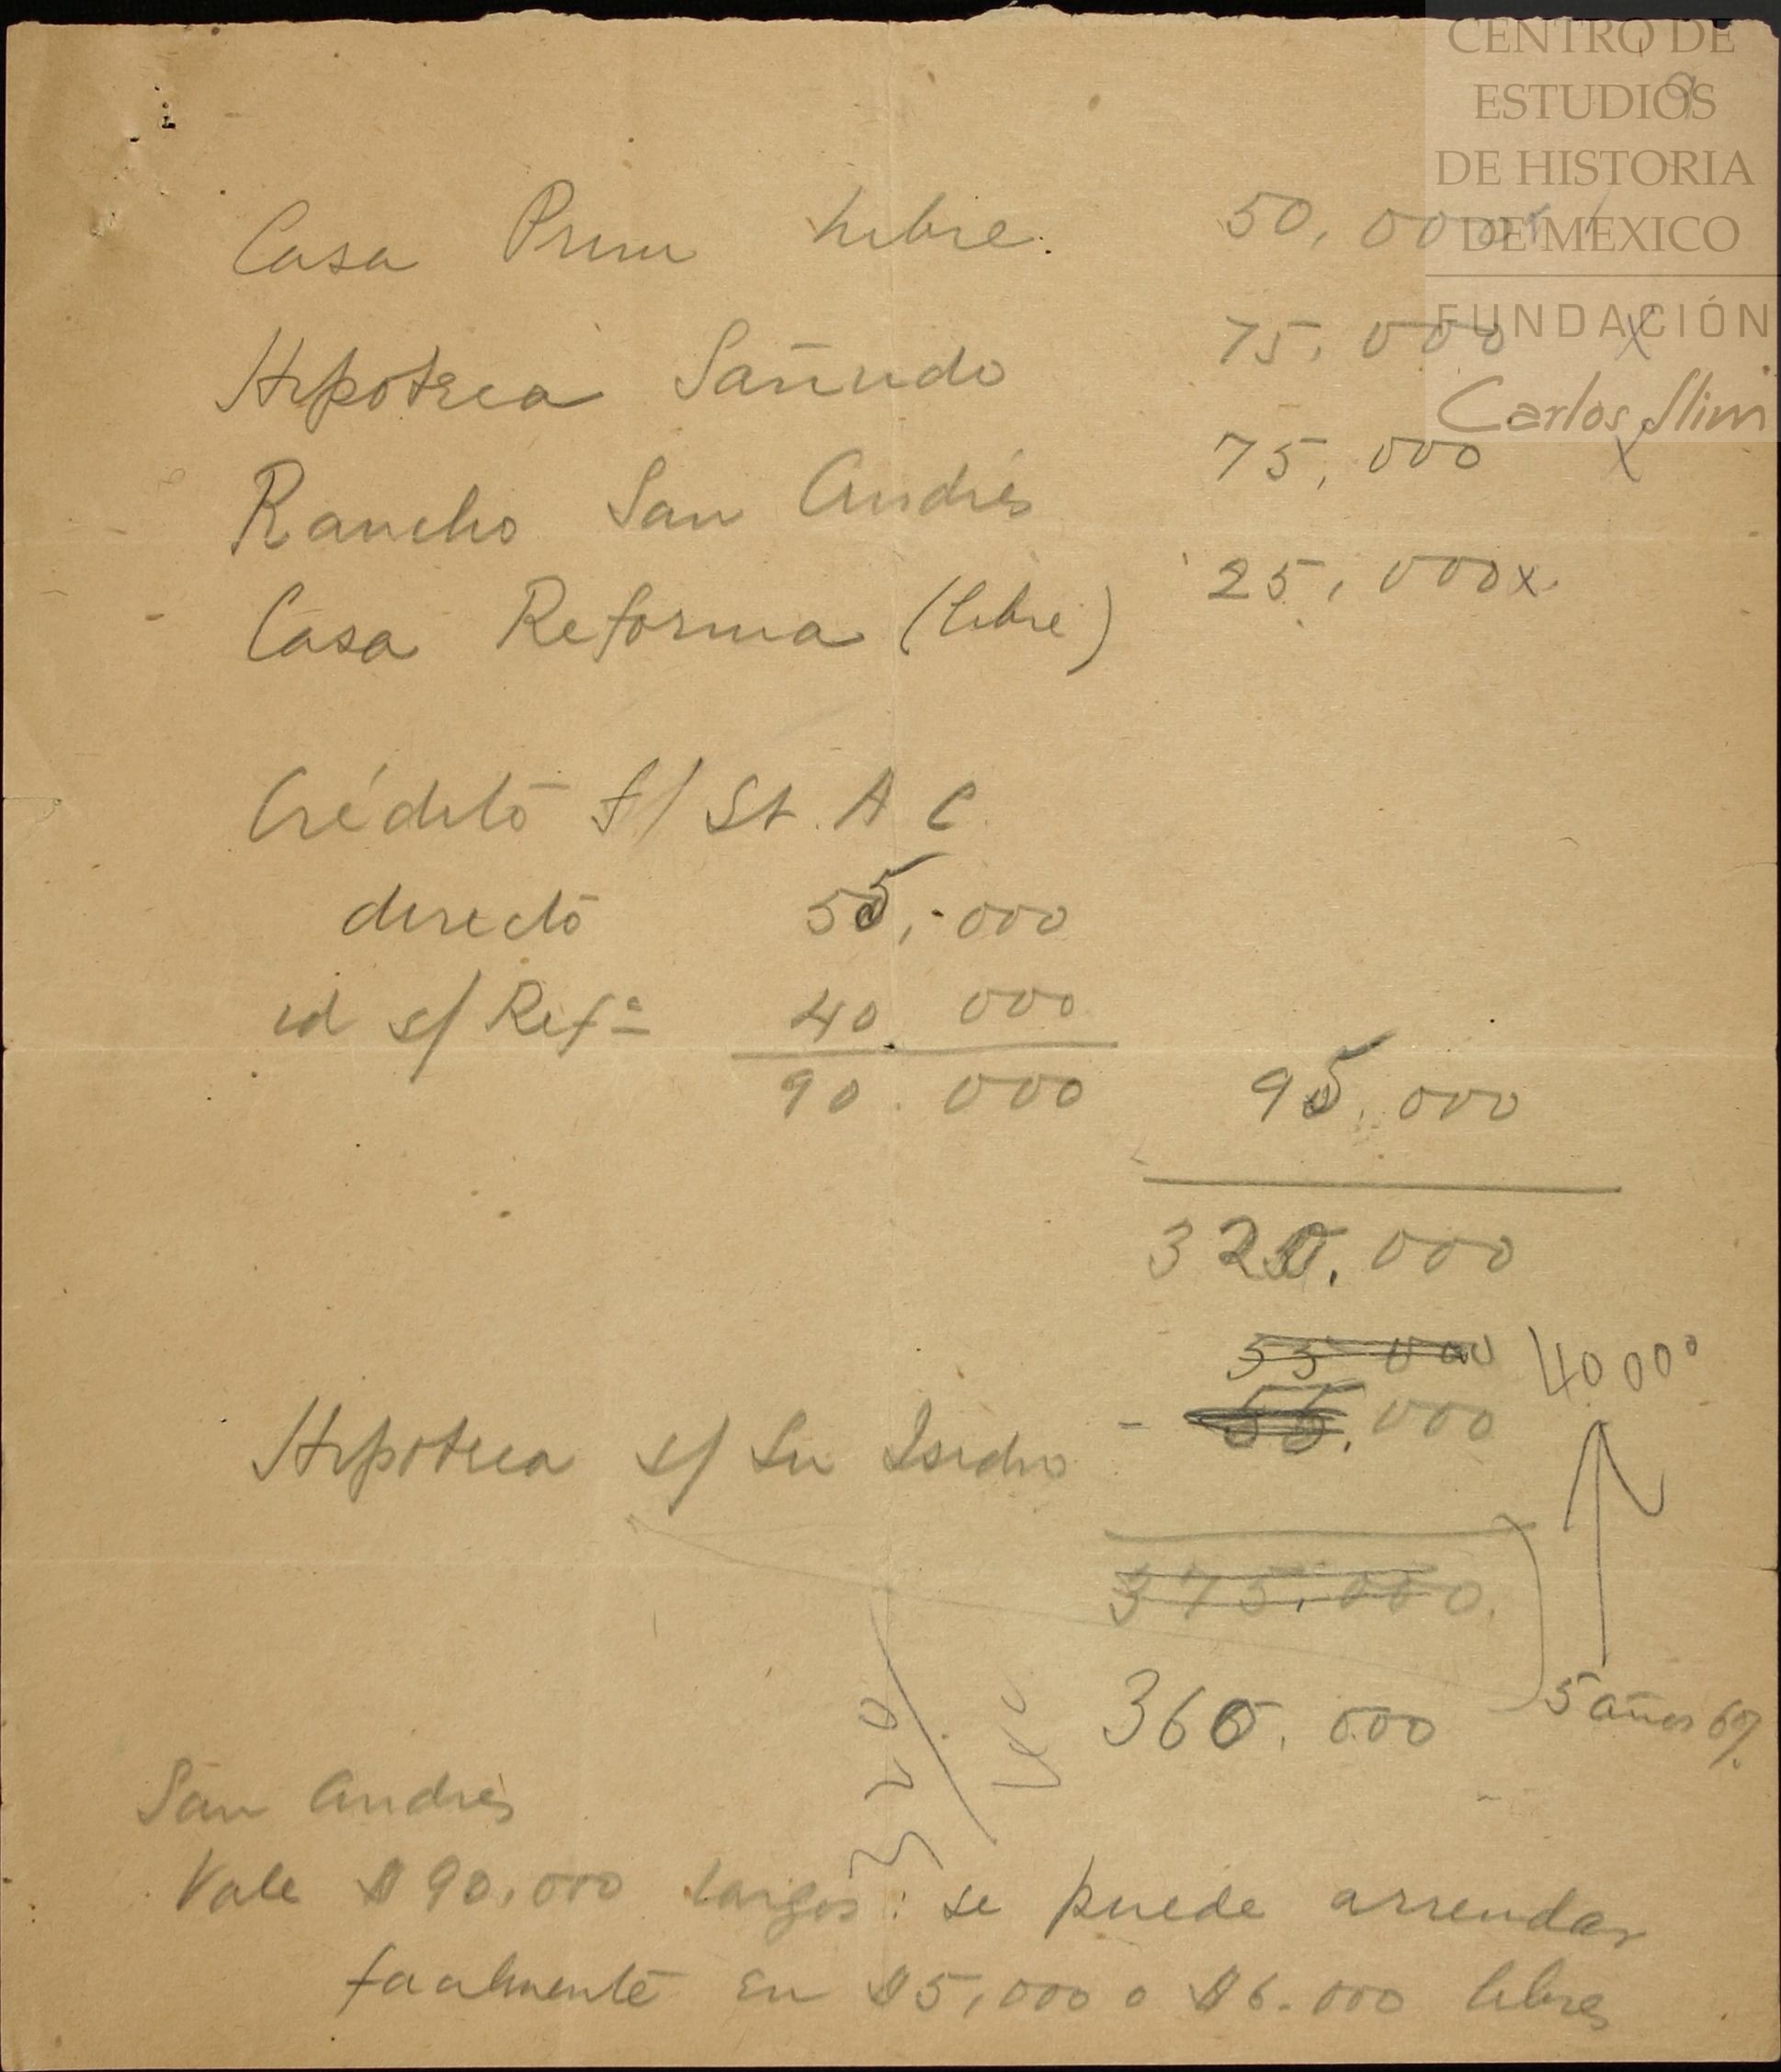 CENTRO DE
ESTUDIOS
DE HISTORIA
DE MEXICO
FUNDACIÓN
Carlos Slim
Casa Prim libre. 50,000
Hipoteca Sañudo 75,000 x
Rancho San Andrés 75,000 x
Casa Reforma (libre) 25,000 x
Crédito f/ St. A C
directo 55,000
id s/ Refª 40.000
90.000 95.000
320.000
55 000 40000
Hipoteca s/ Sn Isidro - 55.000
375.000.
360.000 5 años 6%
320
San Andrés
Vale $90,000 largos: se puede arrendar
facilmente en $5,000 o $6.000 libres